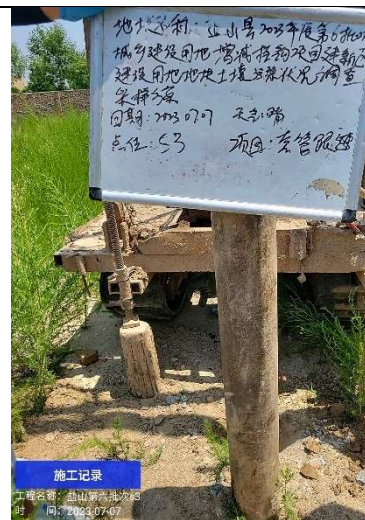 地块名称：盐山县2023年度第6批次
城乡建设用地增减挂钩项目建新区
建设用地地块土壤污染状况调查
采样方案
日期：2023.07.07 天气：晴
点位：S3 项目：套管跟进
施工记录
工程名称：盐山第六批次s3
时 间：2023-07-07